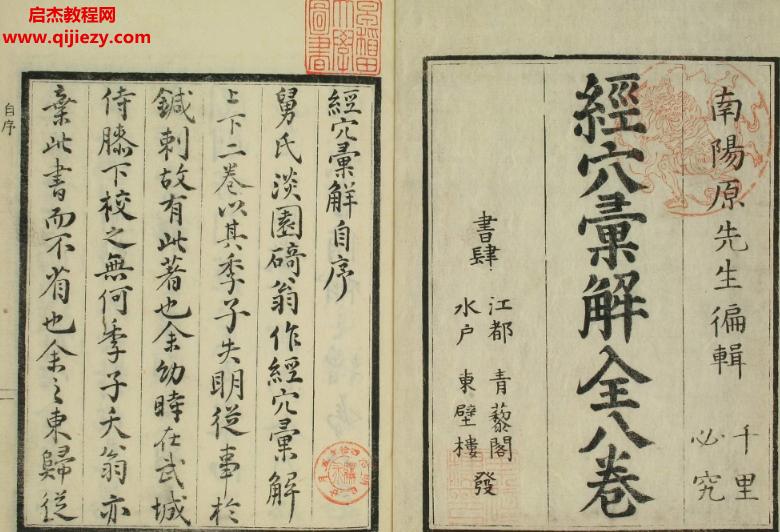 启杰教程网
www.qijiezy.com
南陽原先生徧輯
千里必究
經穴彙解全八卷
書肆
江都 青藜閣
水戶 東壁樓
發
經穴彙解自序
舅氏淡園碕翁作經穴彙解
上下二卷以其季子失明從事於
鍼刺故有此著也余幼時在武城
侍膝下校之無何季子夭翁亦
棄此書而不省也余之東歸從
自序